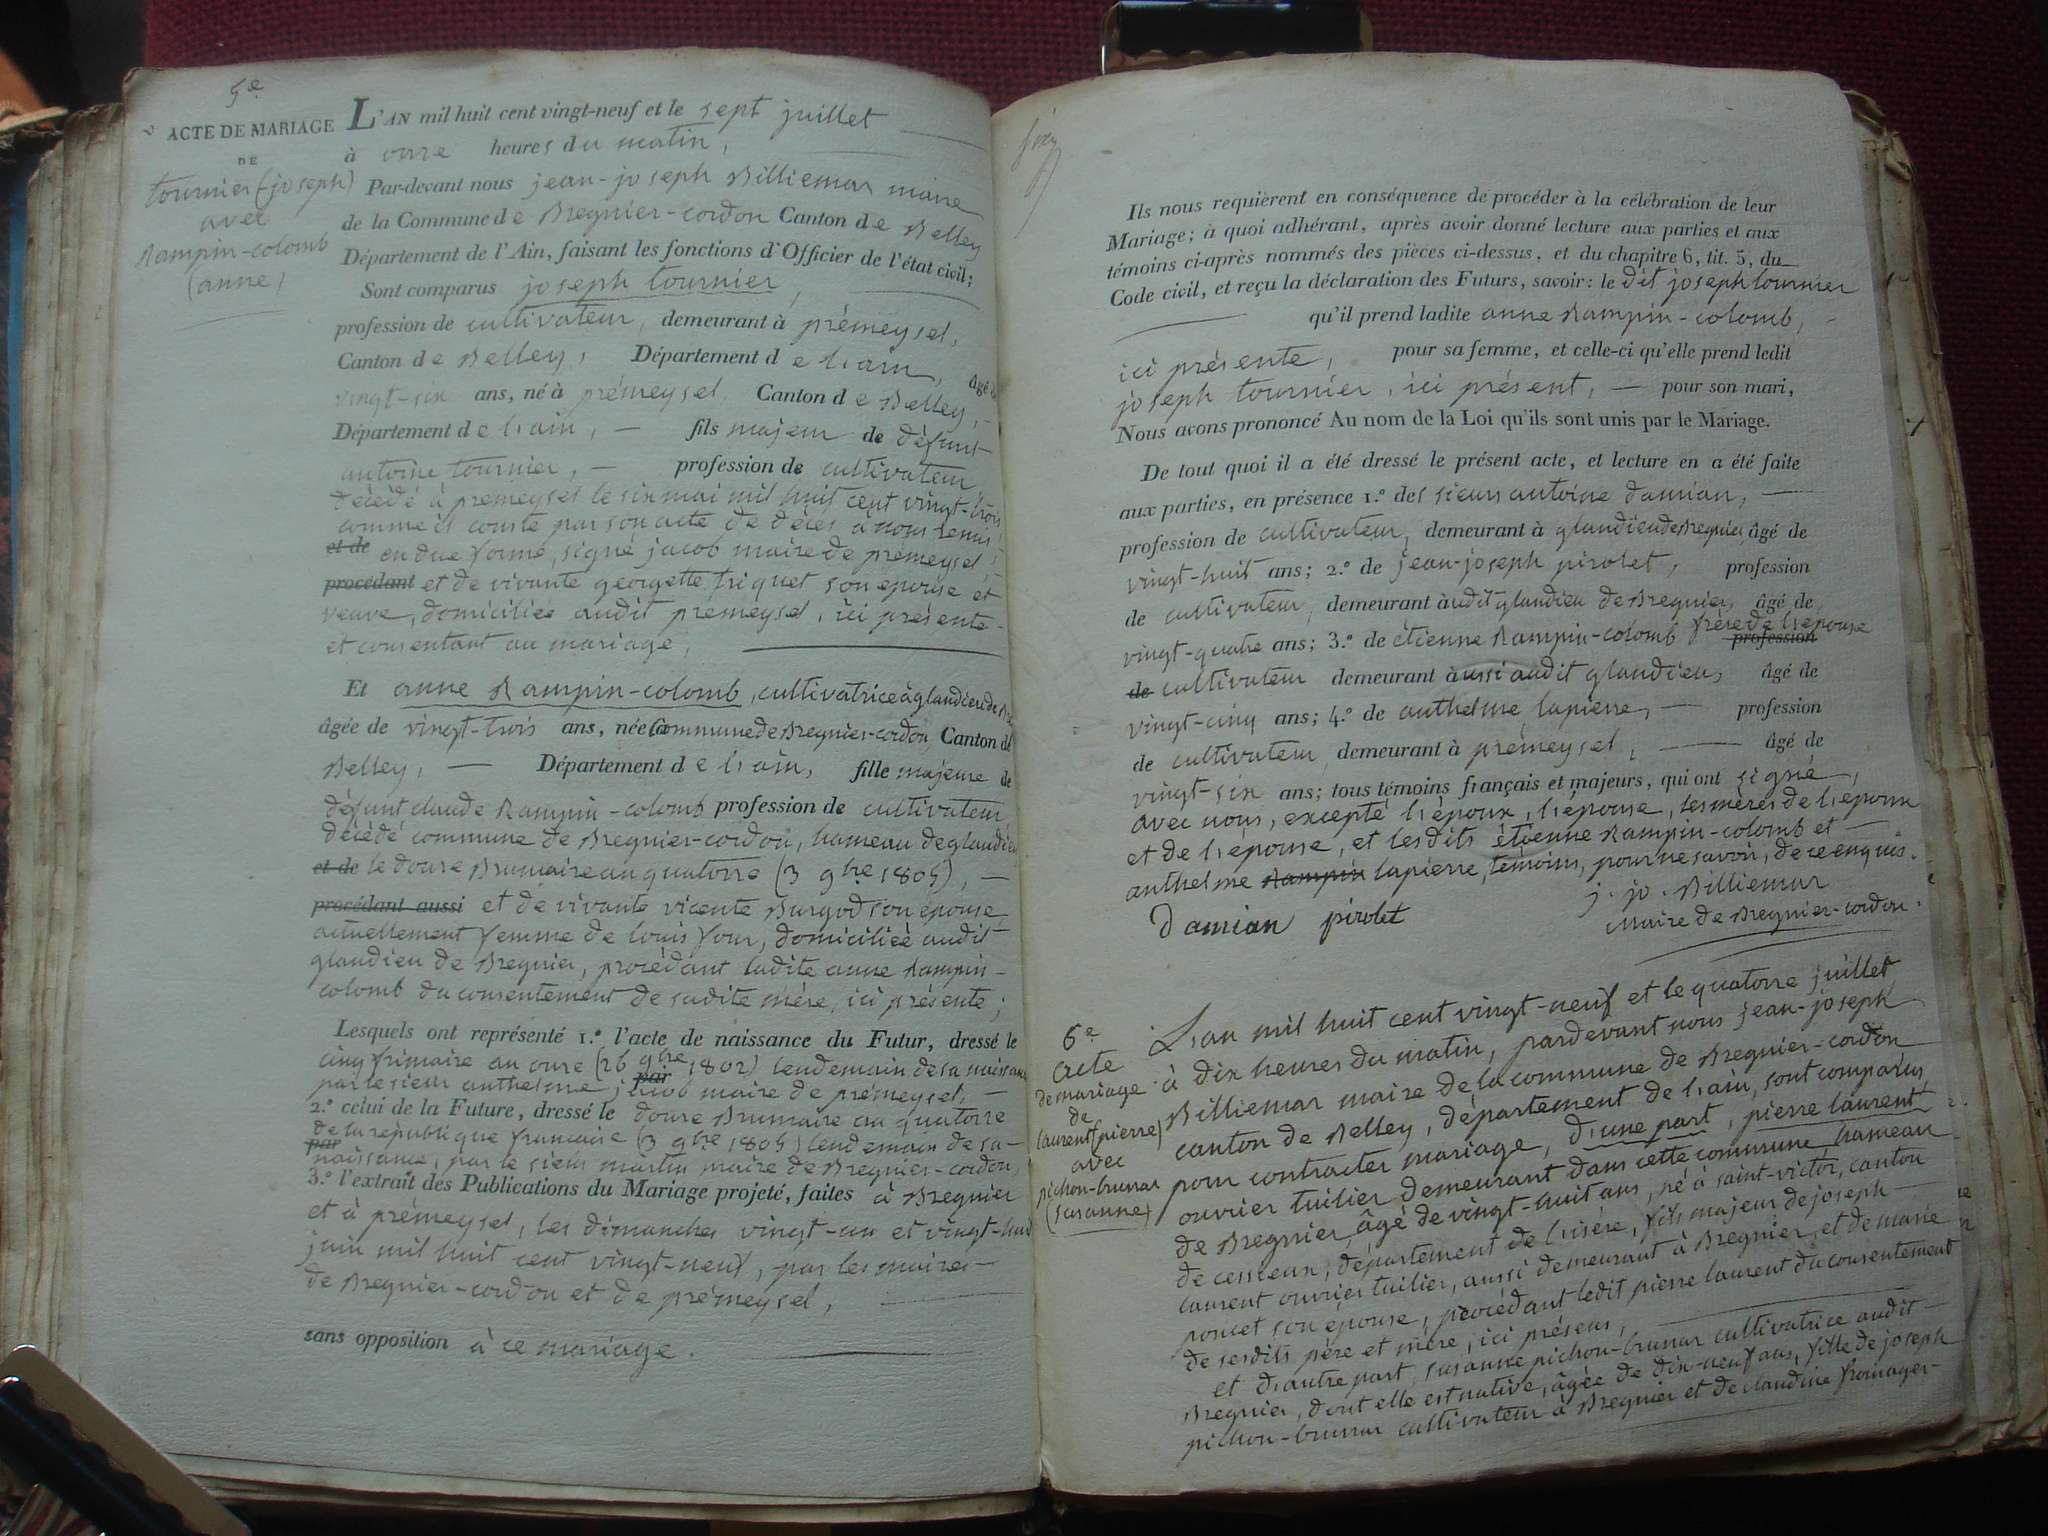 5e
ACTE DE MARIAGE
DE
tournier (joseph)
avec
Rampin-colomb
(anne)
L'AN mil huit cent vingt-neuf et le sept juillet
à onze heures du matin,
Par-devant nous jean-joseph Billiemar maire
de la Commune de Bregnier-cordon Canton de Belley
Département de l'Ain, faisant les fonctions d'Officier de l'état civil;
Sont comparus joseph tournier,
profession de cultivateur, demeurant à prémeysel,
Canton de Belley, Département de l'ain, âgé de
vingt-six ans, né à prémeysel, Canton de Belley,
Département de l'ain, fils majeur de défunt
antoine tournier, profession de cultivateur
décédé à prémeysel le six mai mil huit cent vingt-trois
comme il conste par son acte de décès à nous remis
et de en due forme, signé jacob maire de prémeysel,
procédant et de vivante georgette triquet son épouse et
veuve, domiciliée audit prémeysel, ici présente
et consentant au mariage,
Et anne Rampin-colomb, cultivatrice à glandieu de
âgée de vingt-trois ans, née commune de Bregnier-cordon, Canton de
Belley, Département de l'ain, fille majeure de
défunt claude Rampin-colomb profession de cultivateur
décédé commune de Bregnier-cordon, hameau de glandieu
et de le douze Brumaire an quatorze (3 9bre 1805),
procédant aussi et de vivante vicente Burgod son épouse
actuellement femme de louis four, domiciliée audit
glandieu de Bregnier, procédant ladite anne Rampin-
colomb du consentement de sadite mère, ici présente;
Lesquels ont représenté 1.º l'acte de naissance du Futur, dressé le
cinq frimaire an onze (26 9bre 1802) lendemain de sa naissance
par le sieur anthelme jacob maire de prémeysel,
2.º celui de la Future, dressé le douze Brumaire an quatorze
de la république francaise (3 9bre 1805) lendemain de sa
par naissance, par le sieur martin maire de Bregnier-cordon,
3.º l'extrait des Publications du Mariage projeté, faites à Bregnier
et à prémeysel, les dimanches vingt-un et vingt-huit
juin mil huit cent vingt-neuf, par les maires
de Bregnier-cordon et de prémeysel,
sans opposition à ce mariage.
Ils nous requièrent en conséquence de procéder à la célébration de leur
Mariage; à quoi adhérant, après avoir donné lecture aux parties et aux
témoins ci-après nommés des pièces ci-dessus, et du chapitre 6, tit. 5, du
Code civil, et reçu la déclaration des Futurs, savoir: le dit joseph tournier
qu'il prend ladite anne Rampin-colomb,
ici présente, pour sa femme, et celle-ci qu'elle prend ledit
joseph tournier, ici présent, pour son mari,
Nous avons prononcé Au nom de la Loi qu'ils sont unis par le Mariage.
De tout quoi il a été dressé le présent acte, et lecture en a été faite
aux parties, en présence 1.º des sieurs antoine damian,
profession de cultivateur, demeurant à glandieu de Bregnier, âgé de
vingt-huit ans; 2.º de jean-joseph pirolet, profession
de cultivateur, demeurant audit glandieu de Bregnier, âgé de
vingt-quatre ans; 3.º de étienne Rampin-colomb frère de l'épouse profession
de cultivateur demeurant aussi audit glandieu, âgé de
vingt-cinq ans; 4.º de anthelme lapierre, profession
de cultivateur, demeurant à prémeysel, âgé de
vingt-six ans; tous témoins français et majeurs, qui ont signé,
avec nous, excepté l'époux, l'épouse, les mères de l'époux
et de l'épouse, et lesdits étienne Rampin-colomb et
anthelme Rampin lapierre, témoins, pour ne savoir, de ce enquis.
j. jo. Billiemar
Damian pirolet
Maire de Bregnier-cordon.
6e
acte
de mariage
de
laurent (pierre)
avec
pichon-brunar
(susanne)
L'an mil huit cent vingt-neuf et le quatorze juillet
à dix heures du matin, pardevant nous jean-joseph
Billiemar maire de la commune de Bregnier-cordon
canton de Belley, département de l'ain, sont comparus
pour contracter mariage, d'une part, pierre laurent
ouvrier tuilier demeurant dans cette commune, hameau
de Bregnier, âgé de vingt-huit ans, né à saint-victor, canton
de cessieux, département de l'isère, fils majeur de joseph
laurent ouvrier tuilier, aussi demeurant à Bregnier, et de marie
poncet son épouse, procédant ledit pierre laurent du consentement
de sesdits père et mère, ici présens,
et d'autre part, susanne pichon-brunar cultivatrice audit
Bregnier, dont elle est native, âgée de dix-neuf ans, fille de joseph
pichon-brunar cultivateur à Bregnier et de claudine fromager-